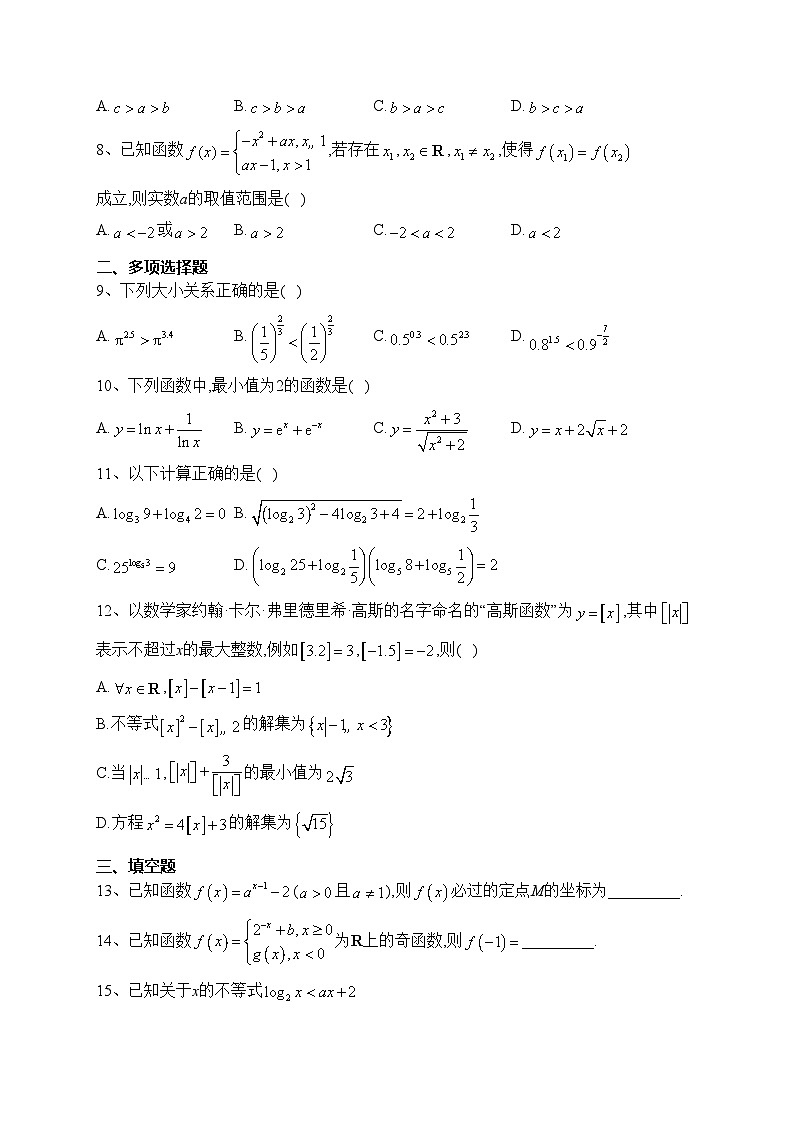 A. c > a > b B. c > b > a C. b > a > c D. b > c > a
8、已知函数 f(x) = { -x² + ax, x,, 1 ; ax - 1, x > 1 ,若存在 x₁ , x₂ ∈ R , x₁ ≠ x₂ ,使得 f(x₁) = f(x₂)
成立,则实数a的取值范围是( )
A. a < -2 或 a > 2 B. a > 2 C. -2 < a < 2 D. a < 2
二、多项选择题
9、下列大小关系正确的是( )
A. π^2.5 > π^3.4 B. (1/5)^(2/3) < (1/2)^(2/3) C. 0.5^0.3 < 0.5^2.3 D. 0.8^1.5 < 0.9^(-7/2)
10、下列函数中,最小值为2的函数是( )
A. y = ln x + 1/ln x B. y = e^x + e^(-x) C. y = (x² + 3)/√(x² + 2) D. y = x + 2√x + 2
11、以下计算正确的是( )
A. log₃ 9 + log₄ 2 = 0 B. √((log₂ 3)² - 4log₂ 3 + 4) = 2 + log₂ 1/3
C. 25^(log₅3) = 9 D. (log₂ 25 + log₂ 1/5)(log₅ 8 + log₅ 1/2) = 2
12、以数学家约翰·卡尔·弗里德里希·高斯的名字命名的“高斯函数”为 y = [x] ,其中[|x|]
表示不超过x的最大整数,例如[3.2] = 3 , [-1.5] = -2 ,则( )
A. ∀x ∈ R , [x] - [x - 1] = 1
B.不等式[x]² - [x],, 2 的解集为{x|-1,, x < 3}
C.当|x|... 1 , [|x|] + 3/[|x|] 的最小值为 2√3
D.方程 x² = 4[x] + 3 的解集为{√15}
三、填空题
13、已知函数 f(x) = a^(x-1) - 2 (a > 0 且 a ≠ 1),则 f(x) 必过的定点M的坐标为_________.
14、已知函数 f(x) = { 2^(-x) + b, x ≥ 0 ; g(x), x < 0 为R上的奇函数,则 f(-1) = _________.
15、已知关于x的不等式 log₂ x < ax + 2